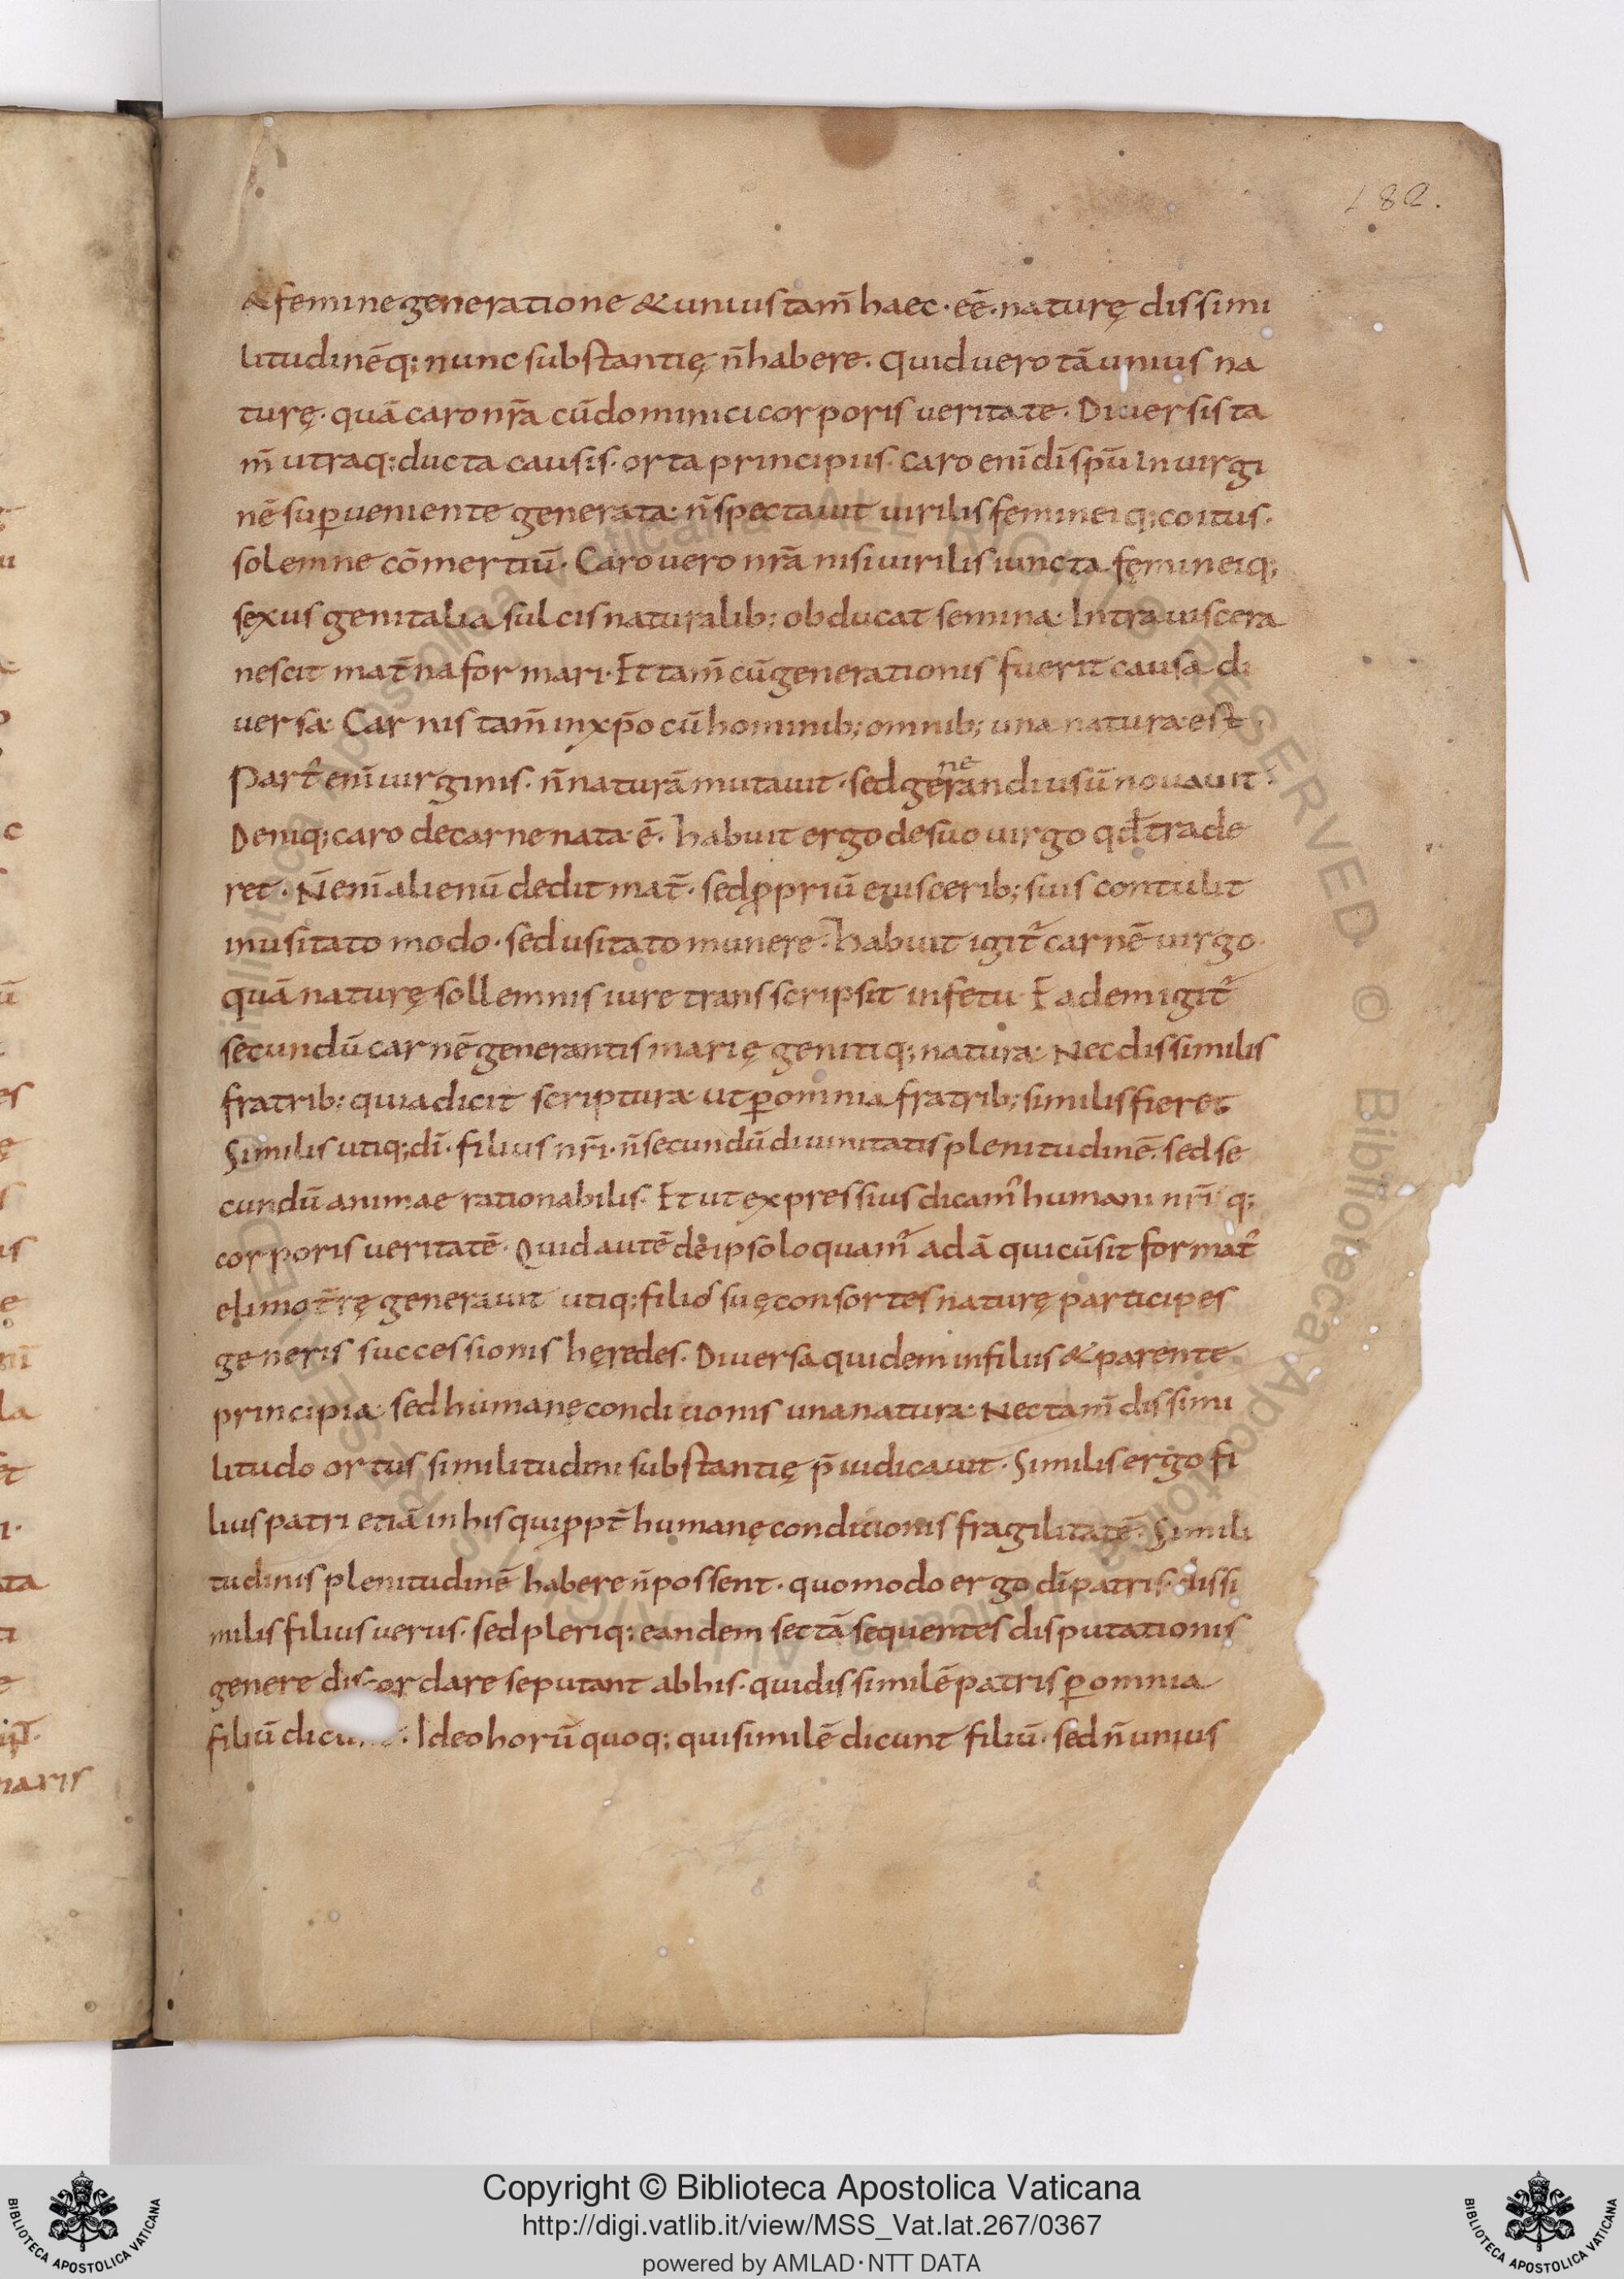 182.
& femine generatione & unius tam̄ haec · eē · naturę dissimi
litudinēq; nunc substantię n̄ habere · Quid uero tā unius na
turę · quā caro nr̄a cū dominici corporis ueritate · Diuersis ta
m̄ utraq; ducta causis · orta principiis · Caro enī dī sp̄u In uirgi
nē sup̱ueniente generata · n̄ spectauit uirilis femineiq; coitus ·
solemne cōmertiū · Caro uero nr̄a nisi uirilis iuncta femineiq;
sexus genitalia sulcis naturalib; obducat semina · Intra uiscera
nescit mat̄na formari · Et tam̄ cū generationis fuerit causa di
uersa · Carnis tam̄ in xp̄o cū hominib; omnib; una natura est ·
Part᷒ enī uirginis · n̄ naturā mutauit · sed generandi usū nouauit ·
Deniq; caro de carne nata ē · habuit ergo de suo uirgo qd̄ trade
ret · N̄ enī alienū dedit mat̄ · sed ꝓpriū e uiscerib; suis contulit
inusitato modo · sed usitato munere · habuit igit᷒ carnē uirgo ·
quā naturę sollemnis iure transscripsit in fetu · Eadem igit᷒
secundū carnē generantis marię genitiq; natura · Nec dissimilis
fratrib; quia dicit scriptura · ut ꝑ omnia fratrib; similis fieret
Similis utiq; dī · filius nr̄i · n̄ secundū diuinitatis plenitudinē · sed se
cundū animae rationabilis · Et ut expressius dicam᷒ humani nr̄i q;
corporis ueritatē · Quid autē de ipso loquam᷒ adā qui cū sit format᷒
e limo t̄rę generauit utiq; filios suę consortes naturę participes
generis successionis hęredes · Diuersa quidem in filiis & parente
principia · sed humanę condicionis una natura · Nec tam̄ dissimi
litudo ortus similitudini substantię p̄iudicauit · Similis ergo fi
lius patri etiā in his qui ꝓpt̄ humanę condicionis fragilitatē · Simili
tudinis plenitudinē habere n̄ possent · quomodo ergo dī patris dissi
milis filius uerus · sed pleriq; eandem sectā sequentes disputationis
genere discordare se putant ab his · qui dissimilē patris ꝑ omnia
filiū · Ideo horū quoq; qui similē dicunt filiū · sed n̄ unius
Copyright © Biblioteca Apostolica Vaticana
http://digi.vatlib.it/view/MSS_Vat.lat.267/0367
powered by AMLAD · NTT DATA
BIBLIOTECA APOSTOLICA VATICANA
BIBLIOTECA APOSTOLICA VATICANA